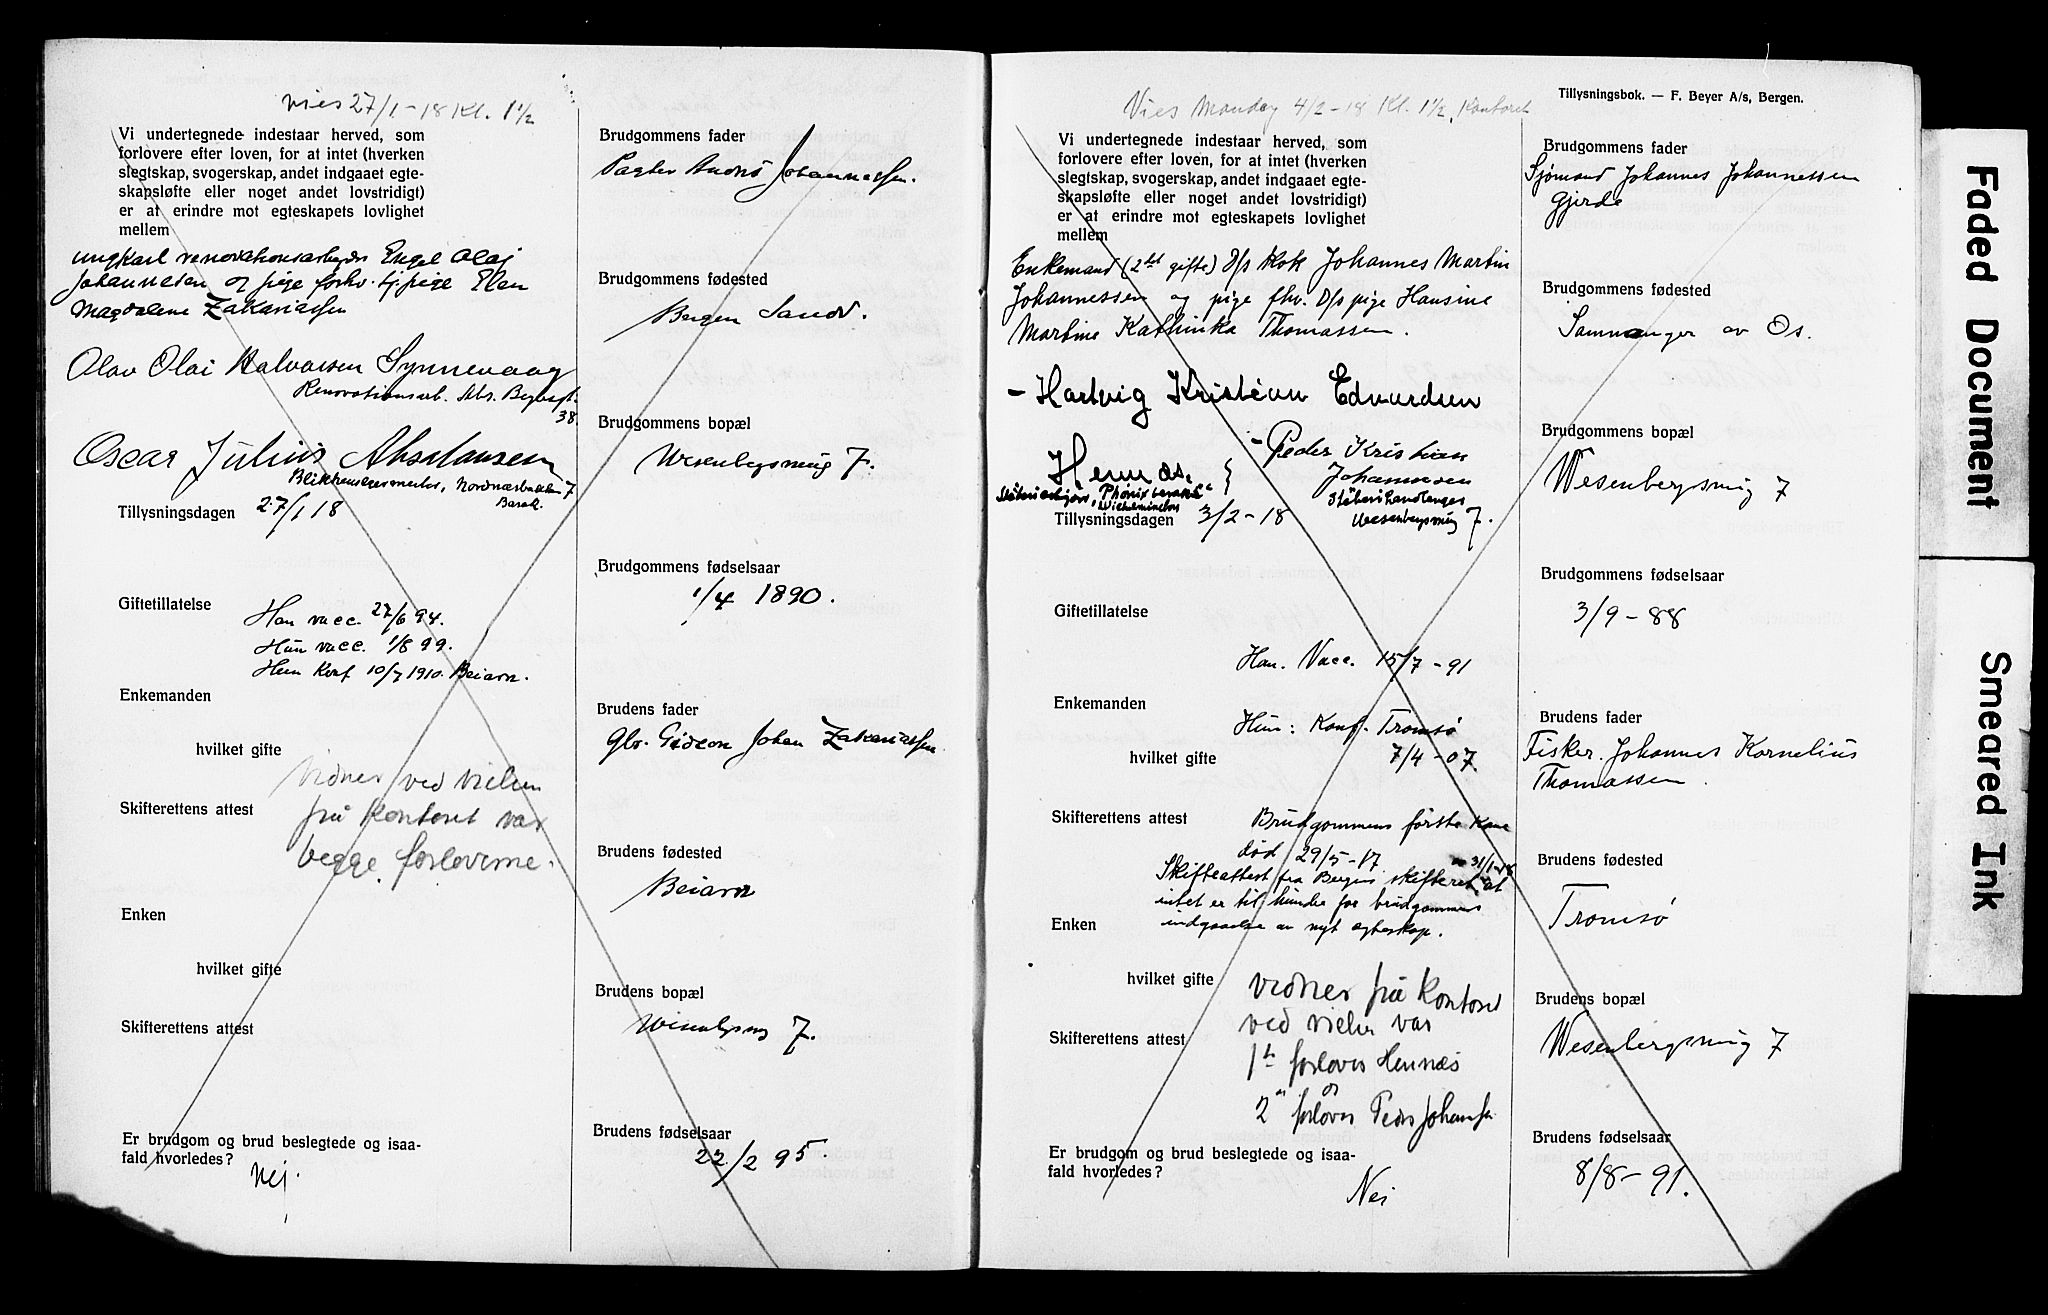 vies 27/1-18 Kl. 1½
Vi undertegnede indestaar herved, som
forlovere efter loven, for at intet (hverken
slegtskap, svogerskap, andet indgaaet egte-
skapsløfte eller noget andet lovstridigt)
er at erindre mot egteskapets lovlighet
mellem
ungkarl renovationsarbeider Engel Olaj
Johannesen og pige forhv. tj.pige Elen
Magdalene Zakariassen
Olav Olai Halvorsen Synnevaag
Renovationsarb.
38.
Oscar Julius
Nordnæsbakken 7
Barak.
Tillysningsdagen 27/1 18
Giftetillatelse
Han vacc. 27/6 94.
Hun vacc. 1/8 99.
Hun Konf 10/7 1910. Beiarn.
Enkemanden
hvilket gifte
Vidner ved vielsen
Skifterettens attest
på kontoret var
begge forloverne.
Enken
hvilket gifte
Skifterettens attest
Er brudgom og brud beslegtede og isaa-
fald hvorledes?
Nej.
Brudgommens fader
Johannessen.
Brudgommens fødested
Bergen Sandv.
Brudgommens bopæl
Wesenbergsmug 7.
Brudgommens fødselsaar
1/4 1890.
Brudens fader
Gbr. Gideon Johan Zakariassen
Brudens fødested
Beiarn
Brudens bopæl
Wesenbgsmg 7.
Brudens fødselsaar
22/2 95.
Tillysningsbok. — F. Beyer A/s, Bergen.
Vies Mandag 4/2-18 Kl. 1½, Kontoret
Vi undertegnede indestaar herved, som
forlovere efter loven, for at intet (hverken
slegtskap, svogerskap, andet indgaaet egte-
skapsløfte eller noget andet lovstridigt)
er at erindre mot egteskapets lovlighet
mellem
Enkemand (2det gifte) D/s Kok Johannes Martin
Johannessen og pige fhv. D/s pige Hansine
Martine Kathinka Thomassen.
- Hartvig Kristian Edvardsen
Hennæs.
- Peder Kristian
Johannesen
Wesenbergsmug 7.
Tillysningsdagen 3/2-18
Giftetillatelse
Han. Vacc. 15/7-91
Enkemanden
Hun: Konf. Tromsø
hvilket gifte 7/4-07.
Skifterettens attest Brudgommens første Kone
død 29/5-17
Skifteattest fra Bergens skifteret av 31/1-18 at
intet er til hinder for brudgommens
Enken indgaaelse av nyt egteskap.
hvilket gifte vidner på Kontoret
ved vielsen var
Skifterettens attest
1ste forlover Hennæs
og
2den forlover Peder Johansen
Er brudgom og brud beslegtede og isaa-
fald hvorledes?
Nei
Brudgommens fader
Sjømand Johannes Johannessen
Gjerde
Brudgommens fødested
Samnanger av Os.
Brudgommens bopæl
Wesenbergsmug 7
Brudgommens fødselsaar
3/9-88
Brudens fader
Fisker. Johannes Kornelius
Thomassen.
Brudens fødested
Tromsø
Brudens bopæl
Wesenbergsmug 7
Brudens fødselsaar
8/8-91.
Faded Document
Smeared Ink